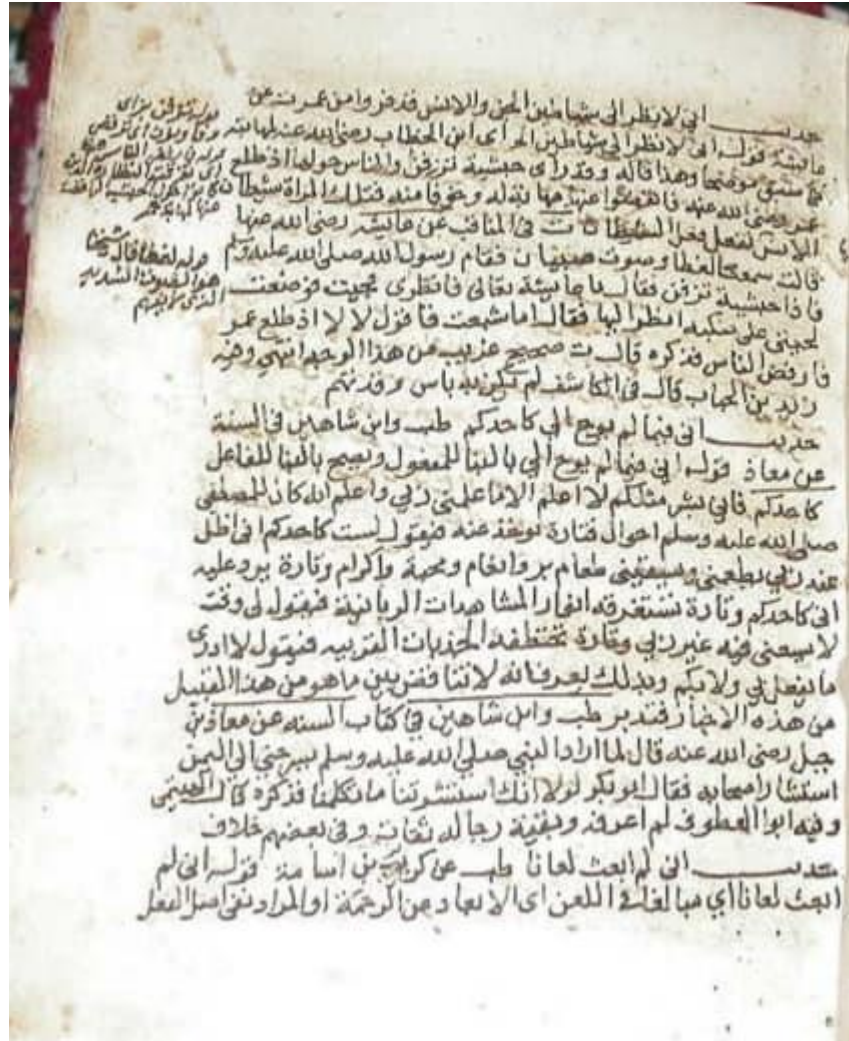 حديث اني لانظر الى شياطين الجن والانس قد فروا من عمر ت عن
عايشة قوله اني لانظر الى شياطين الخ اى ابن الخطاب رضى الله عنه لمهابته
كما سبق موضحا وهذا قاله وقد راى حبشية تزفن والناس حولها اذ طلع
عمر رضى الله عنه فانفضوا عنها مهابة له وخوفا منه فتلك المراة شيطان
الانس لفعل الشيطان ت في المناقب عن عايشه رضى الله عنها
قالت سمعنا لغطا وصوت صبيان فقام رسول الله صلى الله عليه وسلم
فاذا حبشية تزفن فقال يا عايشة تعالى فانظرى فجيت فوضعت
لحيي على منكبه انظر اليها فقال اما شبعت فاقول لا لا اذ طلع عمر
فارفض الناس فذكره قال ت صحيح غريب من هذا الوجه انتهى وفيه
زيد بن الحباب قال في الكاشف لم يكن به باس وقد يهم
حديث اني فيما لم يوح الي كاحدكم طب وابن شاهين في السنة
عن معاذ قوله اني فيما لم يوح الي بالبنا للمفعول ويصح بالبنا للفاعل
كاحدكم فاني بشر مثلكم لا اعلم الا ما علمني ربي واعلم انه كان للمصطفى
صلى الله عليه وسلم احوال فتارة يوخذ عنه فيقول لست كاحدكم اني اظل
عند ربي يطعمني ويسقيني طعام بر وانعام ومحبة واكرام وتارة يرد عليه
اني كاحدكم وتارة تستغرقه انوار المشاهدات الربانية فيقول لي وقت
لا يسعني فيه غير ربي وتارة تختطفه الجذبات القربيه فيقول لا ادرى
ما يفعل بي ولا بكم وبذلك يعرف انه لا تناقض بين ما هو من هذا القبيل
من هذه الاخبار فتدبر طب وابن شاهين في كتاب السنه عن معاذ بن
جبل رضى الله عنه قال لما اراد النبي صلى الله عليه وسلم يسرحني الى اليمن
استشار اصحابه فقال ابو بكر لولا انك استشرتنا ما تكلمنا فذكره قال الهيتمى
وفيه ابوا العطوف لم اعرفه وبقية رجاله ثقات وفي بعضهم خلاف
حديث اني لم ابعث لعانا طب عن كريز بن اسامة قوله اني لم
ابعث لعانا اي مبالغا في اللعن اى الابعاد عن الرحمة او المراد نفي اصل الفعل
قوله تزفن بزاى
وفا ونون اى ترقص
قوله لغطا قال شيخنا
هو الصوت الشديد
الذى لا يفهم